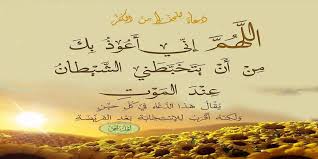 دعاء
اللهم إني أعوذ بك
من أن يتخبطني الشيطان
عند الموت
يقال هذا الدعاء في كل حين
ولكنه أقرب للإستجابة بعد الفريضة